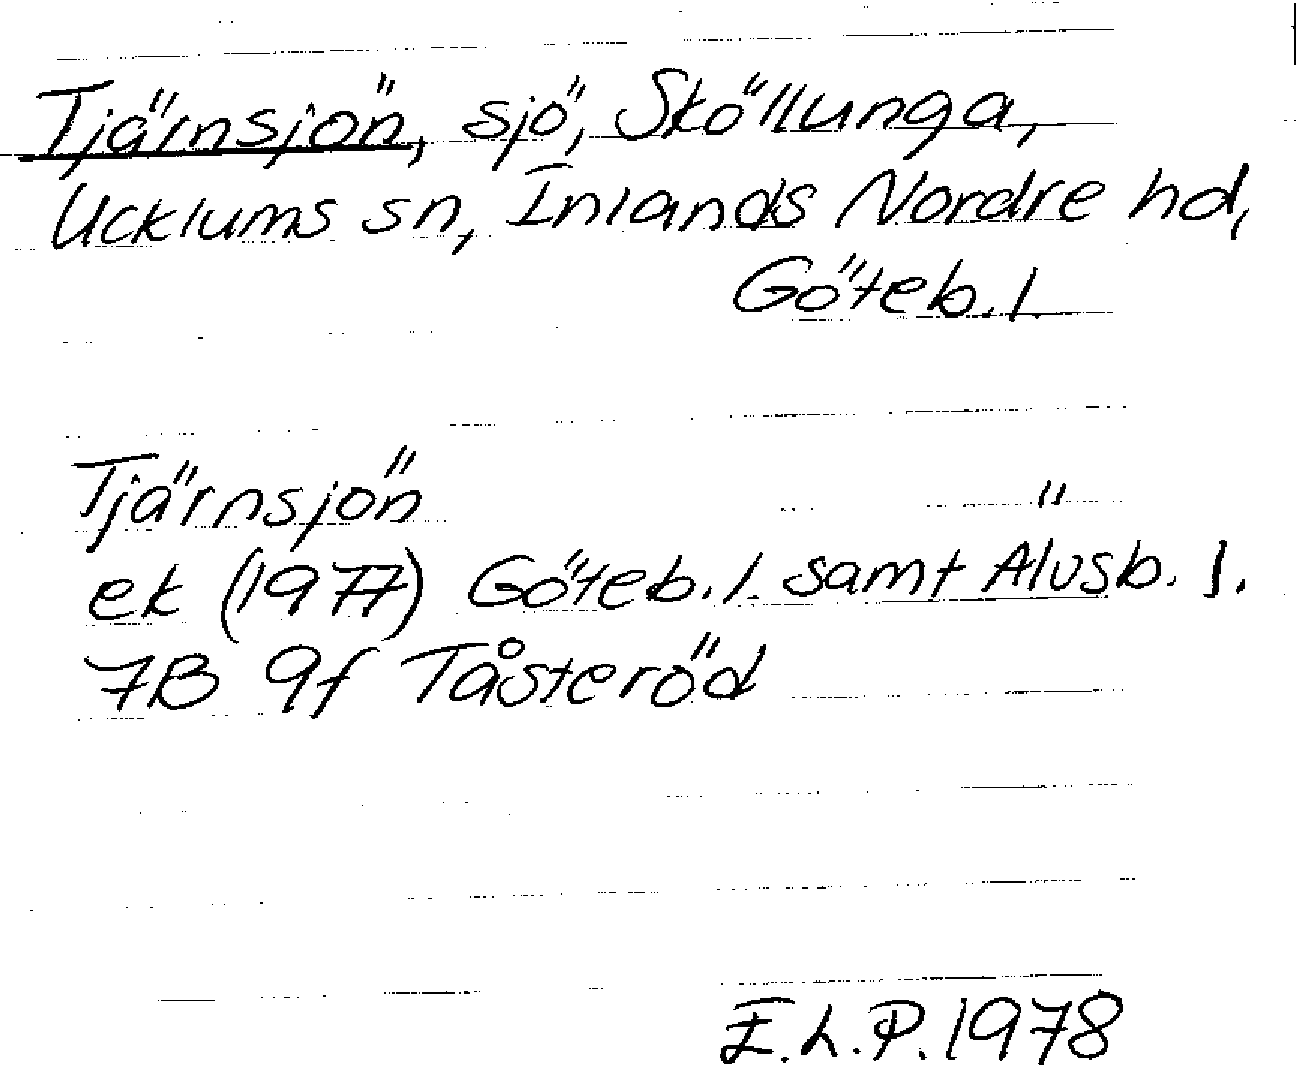 Tjärnsjön, sjö, Sköllunga,
Ucklums sn, Inlands Nordre hd,
Göteb. l.
Tjärnsjön
ek (1977) Göteb. l. samt Älvsb. l.
7B 9f Tåsteröd
E.L.P. 1978